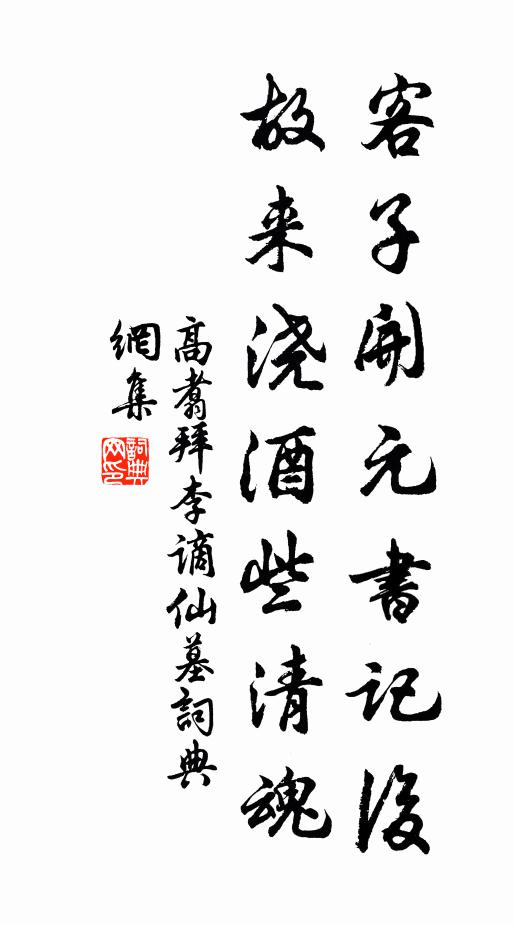 客子開元書記後
故来浇酒些清魂
高翥拜李谪仙墓詞典
網集
詞典網印